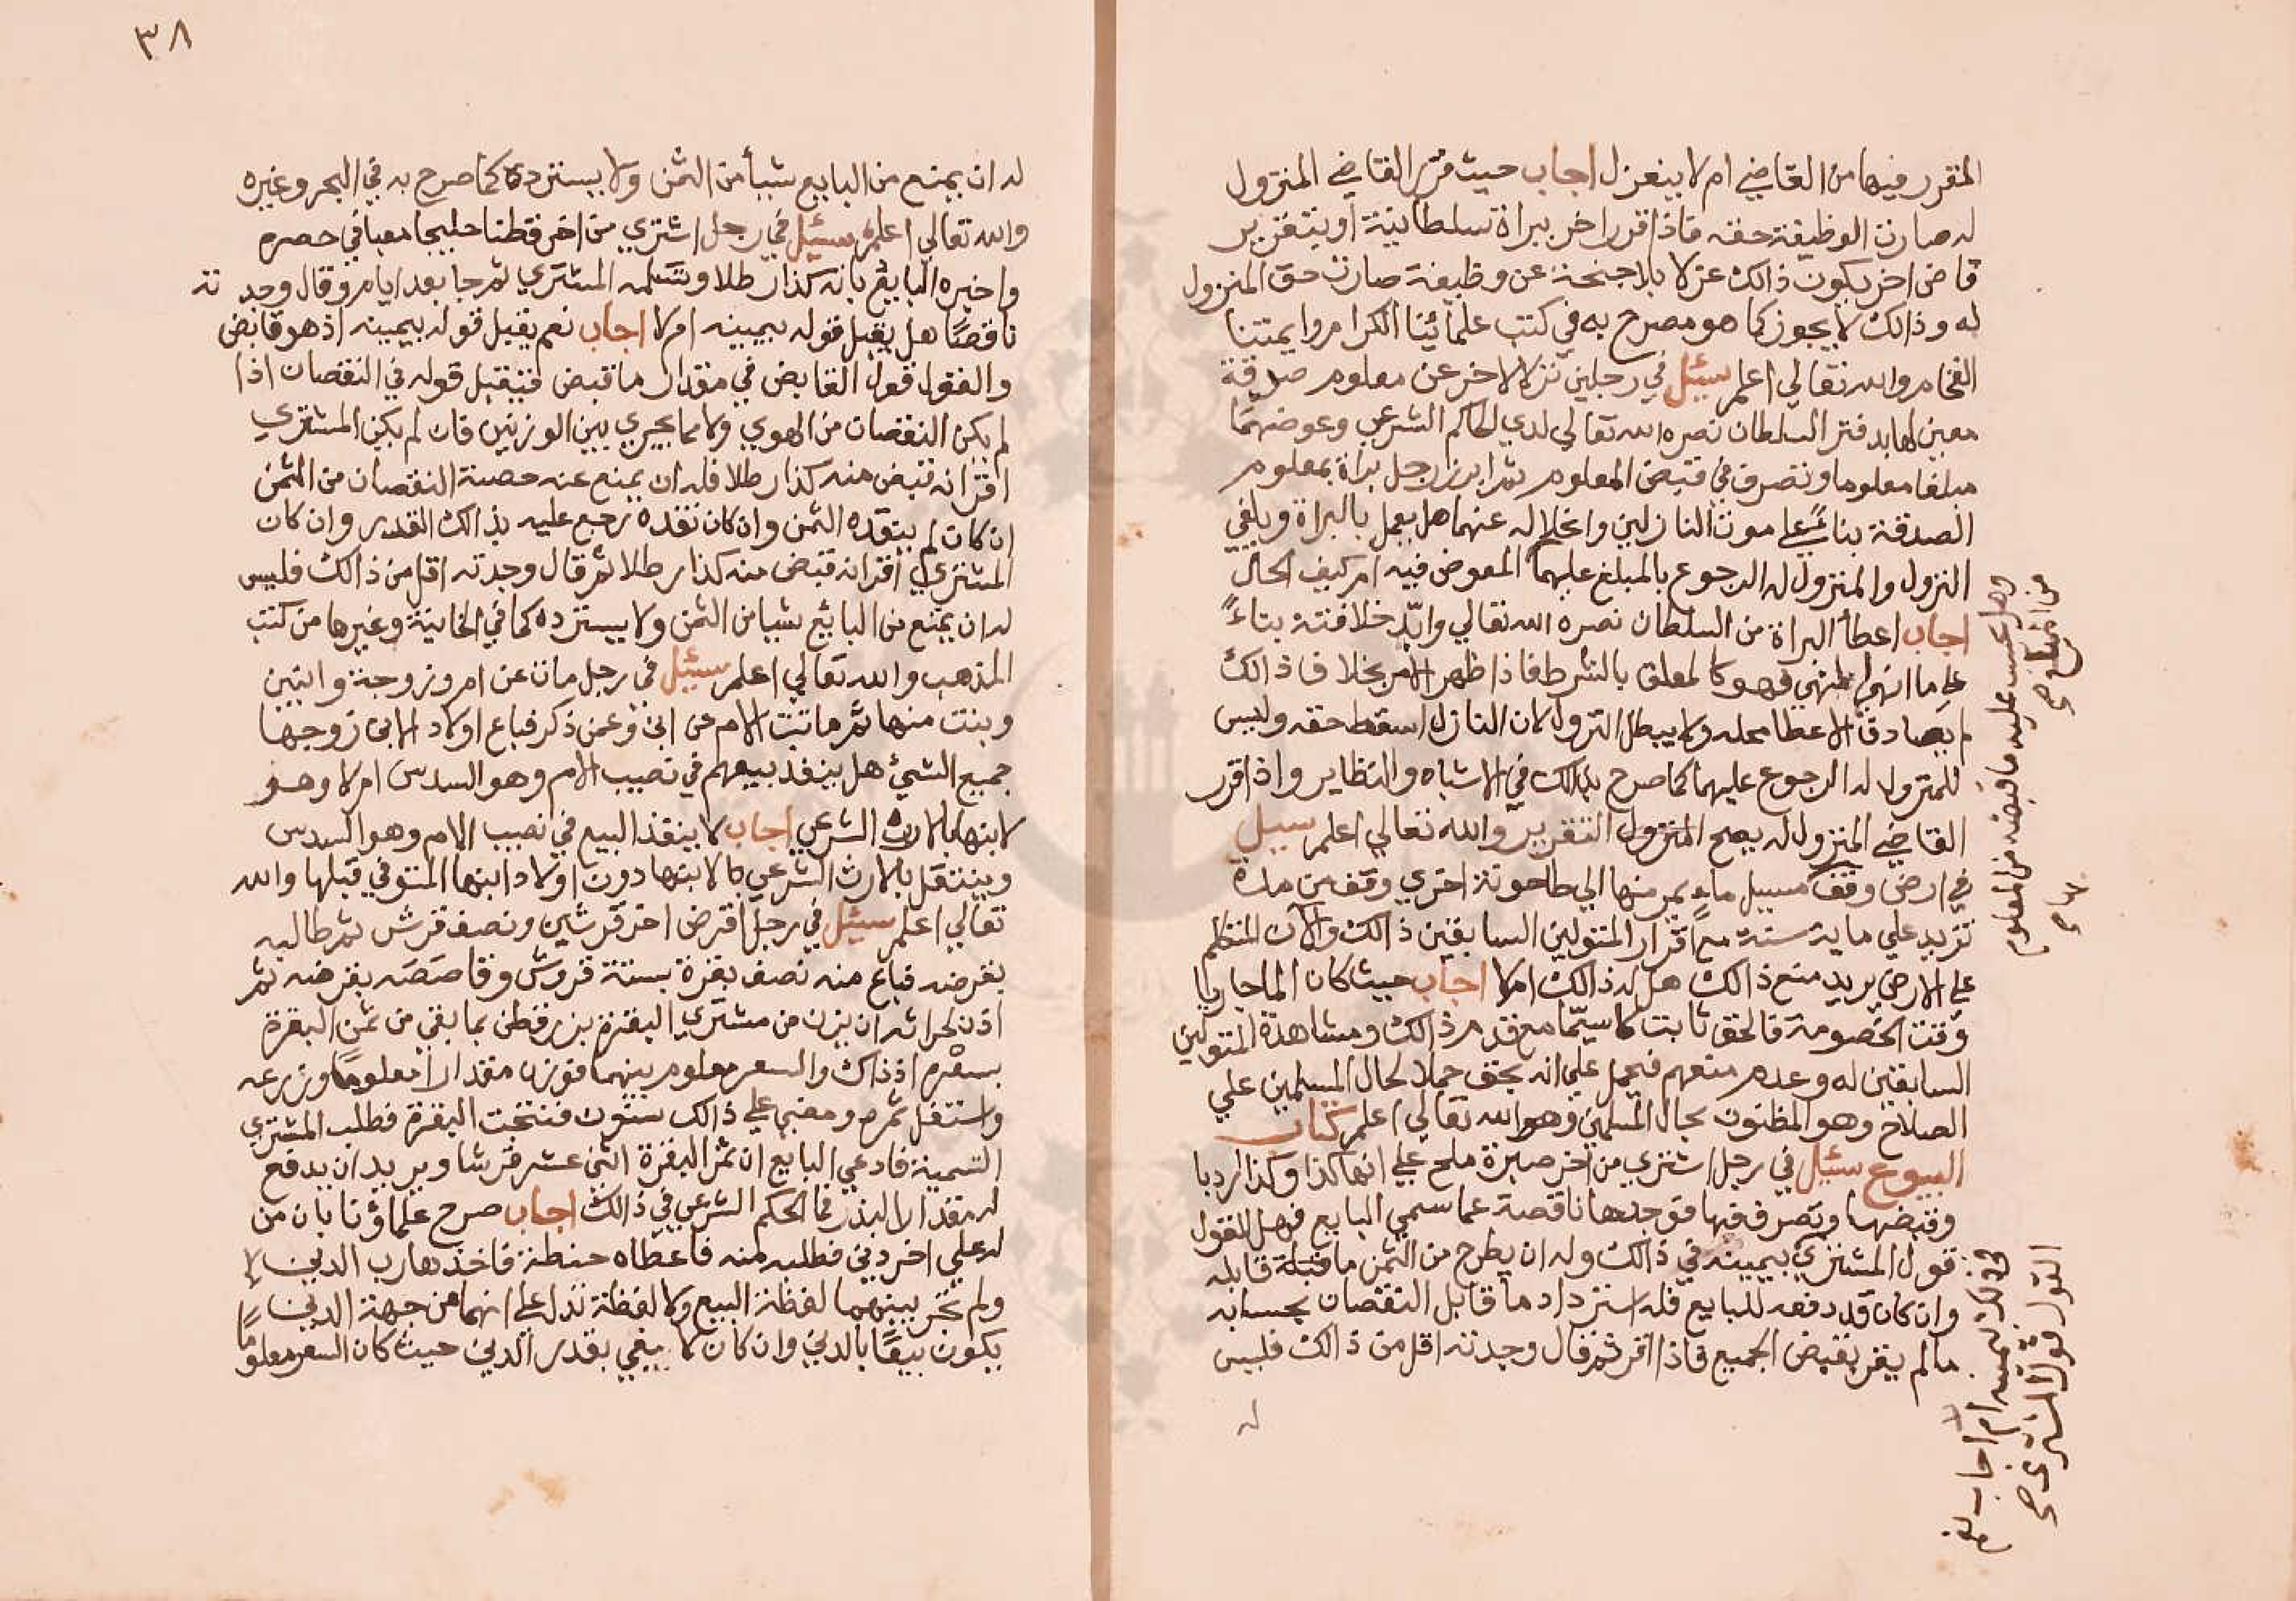 المقرر فيها من القاضي ام لا ينعزل اجاب حيث قرر القاضي المنزول
له صارت الوظيفة حقه فاذا قرر اخر ببراة سلطانية او بتقرير
قاض اخر يكون ذالك عزلا بلا جنحة عن وظيفة صارت حق المنزول
له وذالك لا يجوز كما هو مصرح به في كتب علمائنا الكرام وايمتنا
الفخام والله تعالي اعلم سئيل في رجلين نزلا لاخر عن معلوم صدقة
معين لها بدفتر السلطان نصره الله تعالي لدي الحاكم الشرعي وعوضهما
مبلغا معلوما وتصرف في قبض المعلوم ثم ابرز رجل براة بمعلوم
الصدقة بناء علي موت النازلين وانحلاله عنهما هل يعمل بالبراة ويلغي
النزول والمنزول له الرجوع بالمبلغ عليهما المعوض فيه ام كيف الحال
اجاب اعطأ البراة من السلطان نصره الله تعالي وابّد خلافته بناءً
علي ما انهي المنهي فهو كالمعلق بالشرط فاذا ظهر الامر بخلاف ذالك
لم يصادف الاعطا محله ولا يبطل النزول لان النازل اسقط حقه وليس
للمنزول له الرجوع عليهما كما صرح بذالك في الاشباه والنظاير واذا قرر
القاضي المنزول له يصح المنزول التقرير والله تعالي اعلم سيل
في ارض وقف مسيل ماء يمر منها الي طاحونة اخري وقف من مدة
تزيد علي ماية سنة مع اقرار المتولين السابقين ذالك والآن المتكلم
علي الارض يريد منع ذالك هل له ذالك ام لا اجاب حيث كان الما جاريا
وقت الخصومة فالحق ثابت لا سيّما مع قدم ذالك ومشاهدة المتولين
السابقين له وعدم منعهم فيحمل علي انه بحق حملا لحال المسلمين علي
الصلاح وهو المظنون بحال المسلمين وهو الله تعالي اعلم كتاب
البيوع سئيل في رجل اشتري من اخر صبرة ملح علي انها كذا وكذا اردبا
وقبضها وتصرف فيها فوجدها ناقصة عما سمي البايع فهل القول
قول المشتري بيمينه في ذالك وله ان يطرح من الثمن ما قبله قابله
وان كان قد دفعه للبايع فله استرداد ما قابل النقصان بحسابه
ما لم يقر بقبض الجميع فاذا اقر ثم قال وجدته اقل من ذالك فليس
له
وهل يحسب عليه ما قبضه من المعلوم
من المبلغ صح
في ذلك بيمينه ام لا اجاب نعم
القول قول المشتري صح
٣٨
له ان يمنع من البايع شيأ من الثمن ولا يسترده كما صرح به في البحر وغيره
والله تعالي اعلم سئيل في رجل اشتري من اخر قطنا حليجا معبا في حصره
واخبره البايع بانه كذا رطلا وتسلمه المشتري ثم جا بعد ايام وقال وجدته
ناقصًا هل يقبل قوله بيمينه ام لا اجاب نعم يقبل قوله بيمينه اذ هو قابض
والقول قول القابض في مقدار ما قبض فيقبل قوله في النقصان اذا
لم يكن النقصان من الهوي ولا مما يجري بين الوزنين فان لم يكن المشتري
اقر انه قبض منه كذا رطلا فله ان يمنع عنه حصة النقصان من الثمن
ان كان لم ينقده الثمن وان كان نقده رجع عليه بذالك القدر وان كان
المشتري اقر انه قبض منه كذا رطلا ثم قال وجدته اقل من ذالك فليس
له ان يمنع من البايع شيا من الثمن ولا يسترده كما في الخانية وغيرها من كتب
المذهب والله تعالي اعلم سئيل في رجل مات عن ام وزوجة وابنين
وبنت منها ثم ماتت الام عن ابن وعن ذكر فباع اولاد الابن زوجها
جميع الشئ هل ينفذ بيعهم في نصيب الام وهو السدس ام لا وهو
لابنها بالارث الشرعي اجاب لا ينفذ البيع في نصيب الام وهو السدس
وينتقل بالارث الشرعي لابنها دون اولاد ابنها المتوفي قبلها والله
تعالي اعلم سئيل في رجل اقرض اخر قرشين ونصف قرش ثم طالبه
بقرضه فباع منه نصف بقرة بستة قروش وقاصَصَه بقرضه ثم
اذن لحراثه ان يزن من مشتري البقرة بزر قطن بما بقي من ثمن البقرة
بسعرم اذ ذاك والسعر معلوم بينهما فوزن مقدارا معلومًا وزرعه
واستغل ثمره ومضي علي ذالك سنون فنتجت البقرة فطلب المشتري
القسمة فادعي البايع ان ثمن البقرة اثني عشر قرشا ويريد ان يدفع
له مقدار البذر فما الحكم الشرعي في ذالك اجاب صرح علماؤنا بان من
له علي اخر دين فطلبه منه فاعطاه حنطة فاخذها رب الدين
ولم تجر بينهما لفظة البيع ولا لفظة تدل علي انهما من جهة الدين لا
يكون بيعًا بالدين وان كان لا يبقي بقدر الدين حيث كان السعر معلومًا